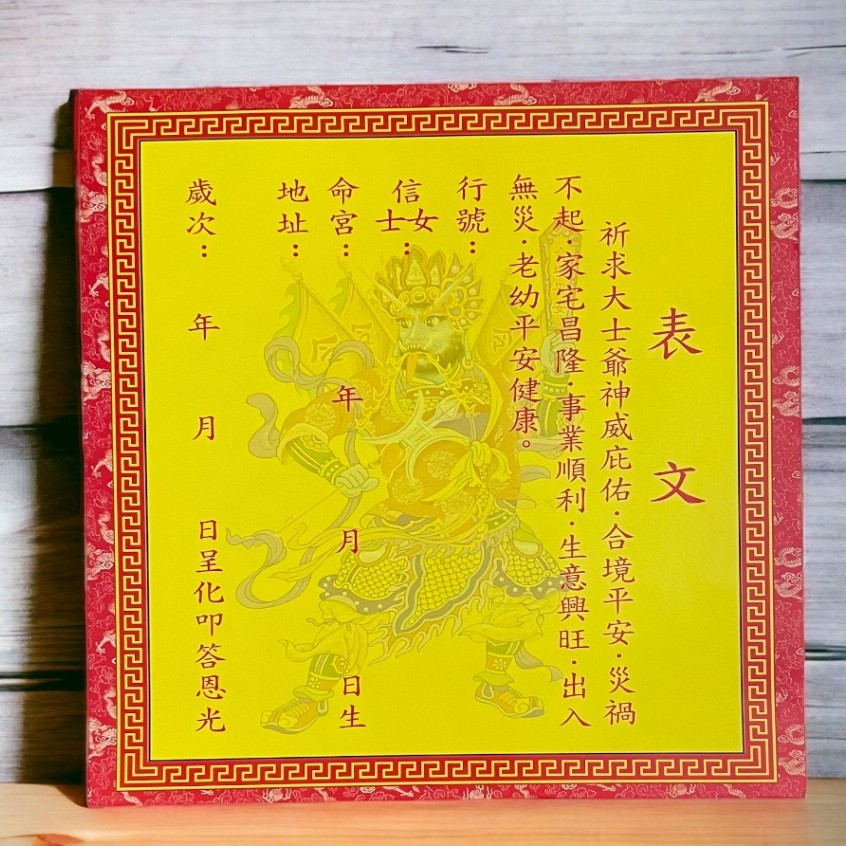 表文
祈求大士爺神威庇佑·合境平安·災禍
不起·家宅昌隆·事業順利·生意興旺·出入
無災·老幼平安健康。
行號：
信士女：
命宮：年月日生
地址：
歲次：年月日呈化叩答恩光